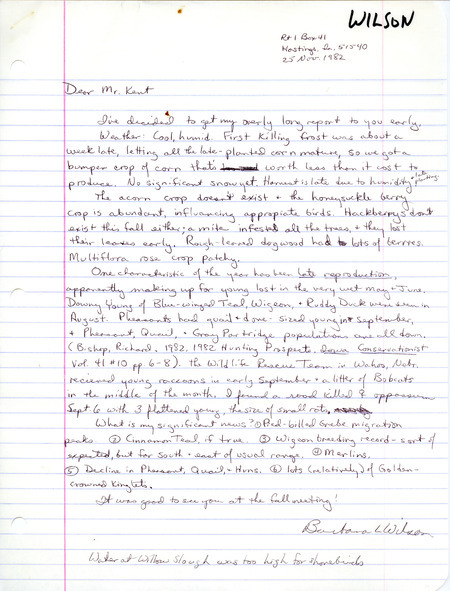 WILSON
Rt 1 Box 41
Hastings, Ia. 51540
25 Nov. 1982
Dear Mr. Kent
I've decided to get my overly long report to you early.
Weather: Cool, humid. First killing frost was about a
week late, letting all the late-planted corn mature, so we got a
bumper crop of corn that's worth less than it cost to
produce. No significant snow yet. Harvest is late due to humidity + late planting
The acorn crop doesn't exist + the honeysuckle berry
crop is abundant, influencing appropiate birds. Hackberrys don't
exist this fall either; a mite infests all the trees, + they lost
their leaves early. Rough-leaved dogwood had lots of berries.
Multiflora rose crop patchy.
One characteristic of the year has been late reproduction,
apparently making up for young lost in the very wet May + June.
Downy Young of Blue-winged Teal, Wigeon, + Ruddy Duck were seen in
August. Pheasants had quail + dove-sized young in September,
+ Pheasant, Quail, + Gray Partridge populations are all down.
(Bishop, Richard, 1982, 1982 Hunting Prospects, Iowa Conservationist
Vol. 41 #10 pp 6-8). The Wildlife Rescue Team in Wahoo, Nebr.
received young raccoons in early September + a litter of Bobcats
in the middle of the month. I found a road killed opposum
Sept 6 with 3 flattened young, the size of small rats.
What is my significant news? ① Pied-billed Grebe migration
peaks ② Cinnamon Teal, if true. ③ Wigeon breeding record - sort of
expected, but far south + east of usual range. ④ Merlins.
⑤ Decline in Pheasant, Quail, + Huns. ⑥ lots (relatively) of Golden-
crowned Kinglets.
It was good to see you at the fall meeting!
Barbara L Wilson
Water at Willow Slough was too high for shorebirds